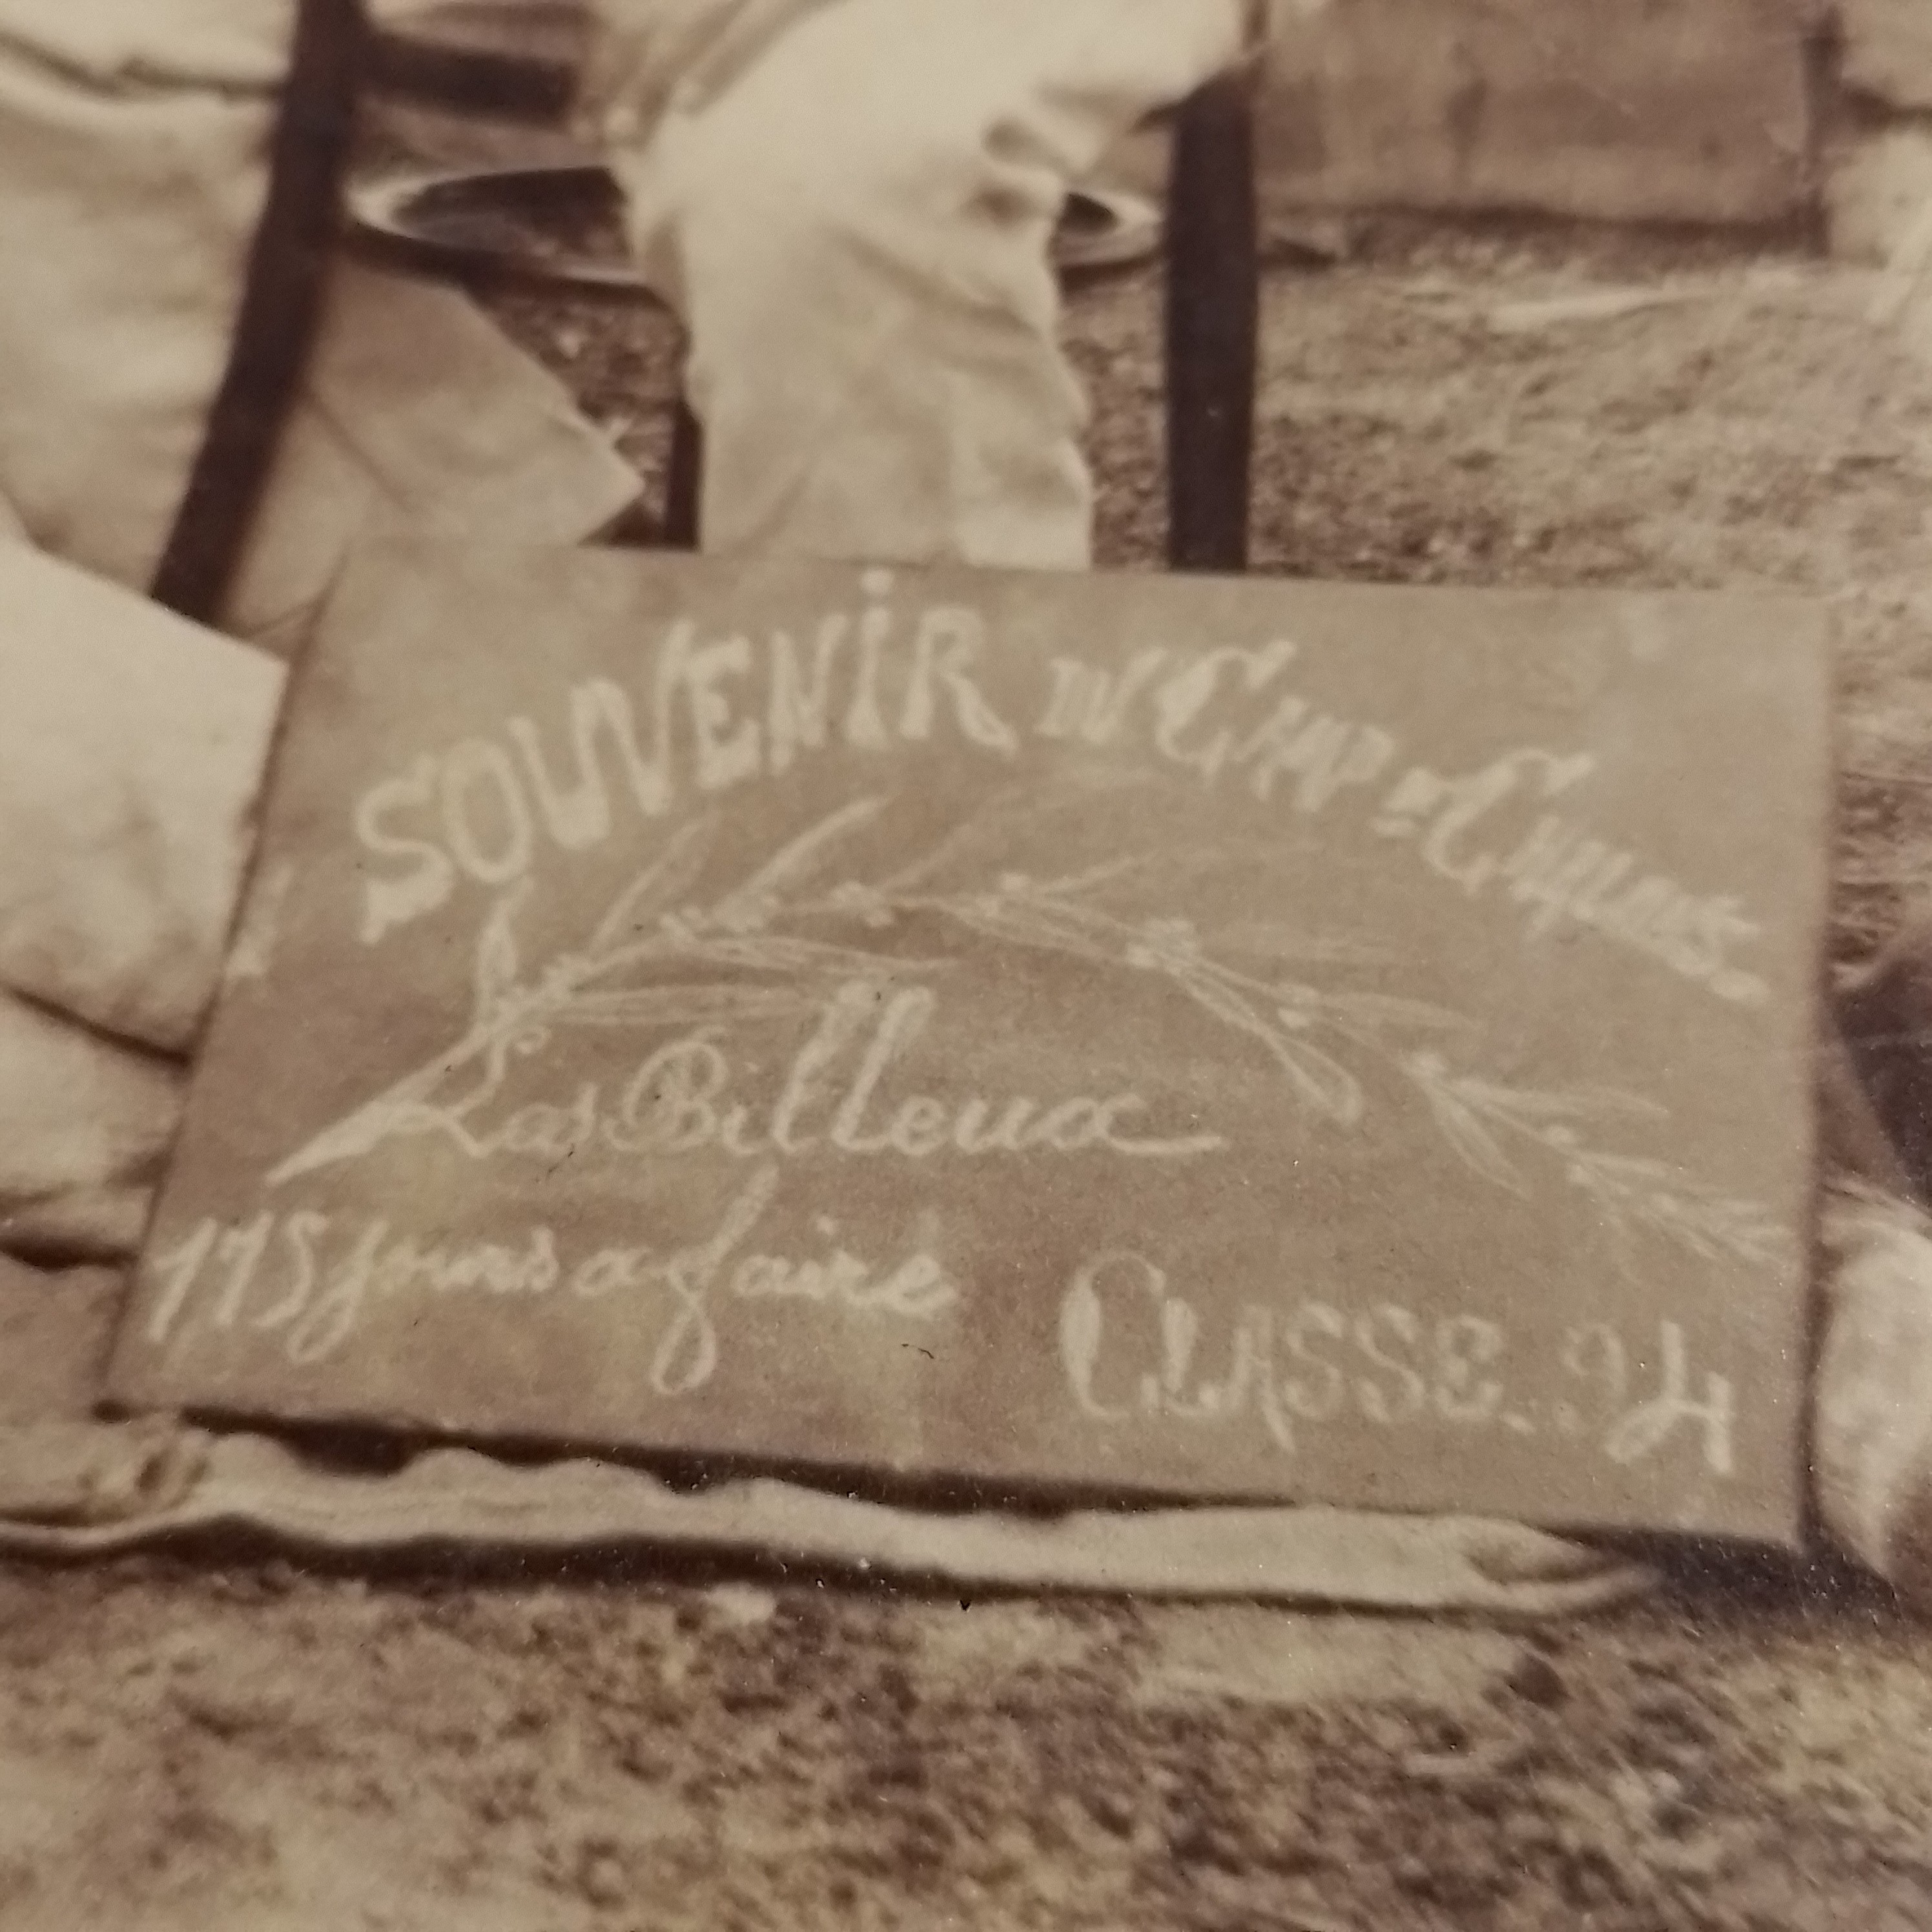 SOUVENIR DU CAMP DE CHALONS
Las Billeux
175 jours a faire
CLASSE. 94